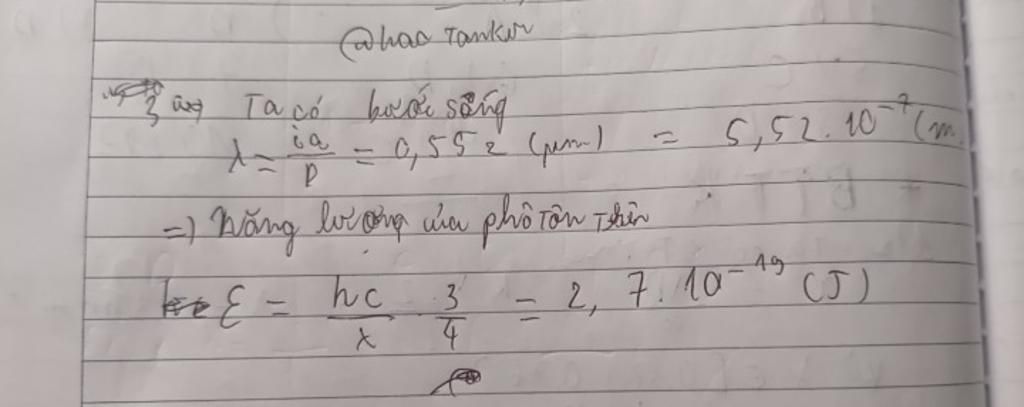 @hao Tankur
Ta có bước sóng
λ = ia/D = 0,552 (μm) = 5,52.10⁻⁷ (m
=) Năng lượng của phô tôn trên
ε = hc/λ 3/4 = 2,7.10⁻¹⁹ (J)